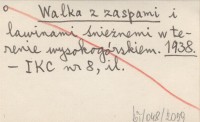 Walka z zaspami i
lawinami śnieżnemi w te-
renie wysokogórskiem. 1938.
— IKC nr 8, il.